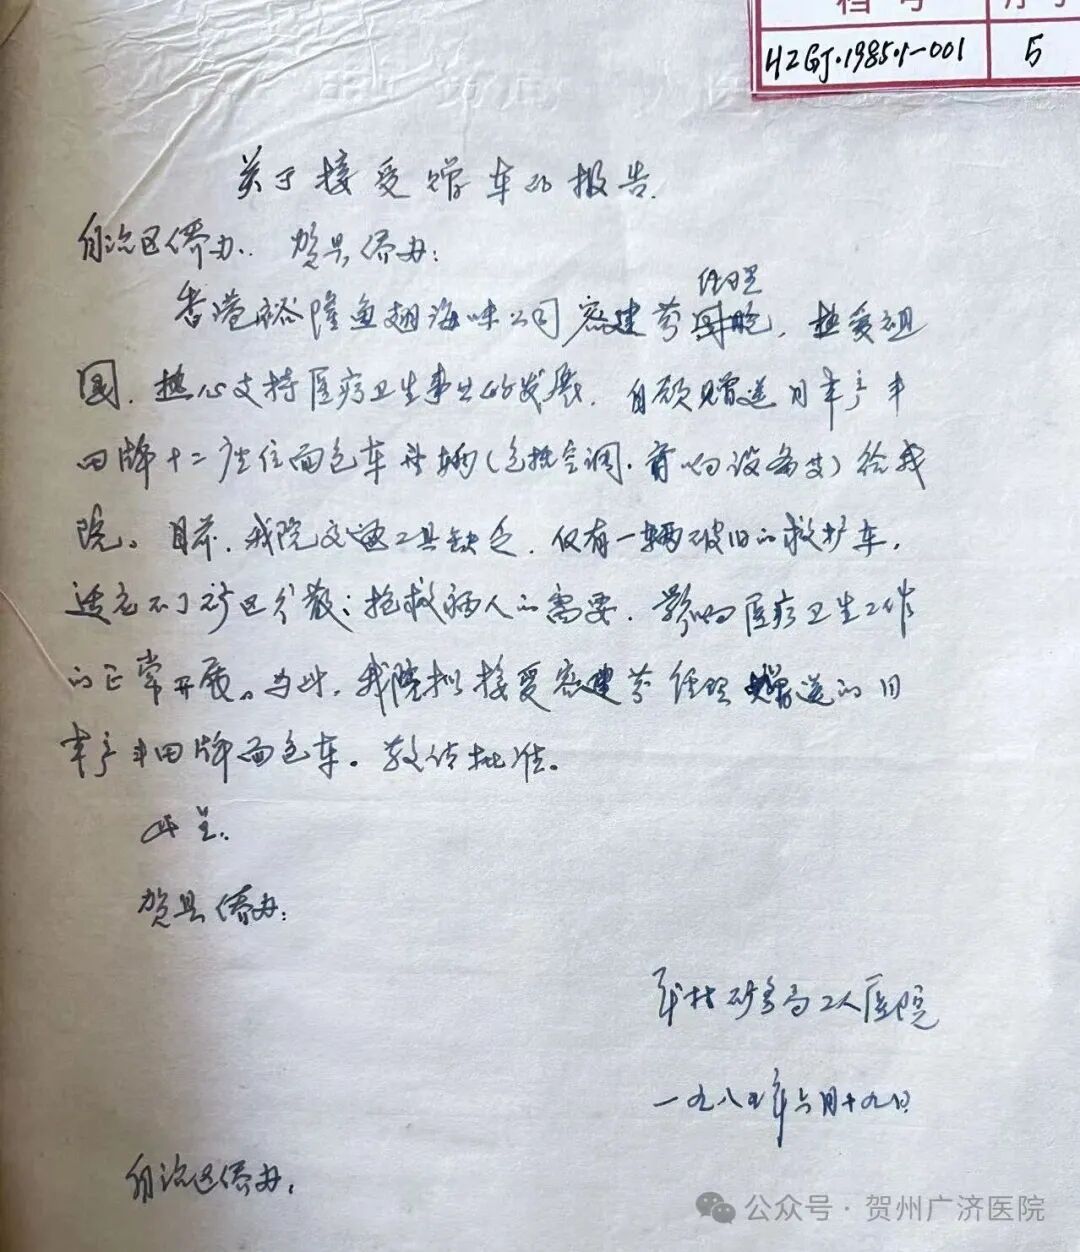 档号 序号
HZGJ·1985·1-001 5
关于接受赠车的报告.
自治区侨办. 贺县侨办:
经理
香港裕隆鱼翅海味公司 建芬 , 热爱祖
国. 热心支持医疗卫生事业的发展. 自愿赠送日本产丰
田牌十二座位面包车壹辆(包括空调. 音响设备等)给我
院。目前. 我院交通工具缺乏. 仅有一辆破旧的救护车.
适应不了矿区分散; 抢救病人的需要. 影响医疗卫生工作
的正常开展。为此. 我院拟接受 建芬经理赠送的日
本产丰田牌面包车。敬请批准。
此呈.
贺县侨办:
平桂矿务局工人医院
一九八五年六月十九日
自治区侨办.
公众号·贺州广济医院